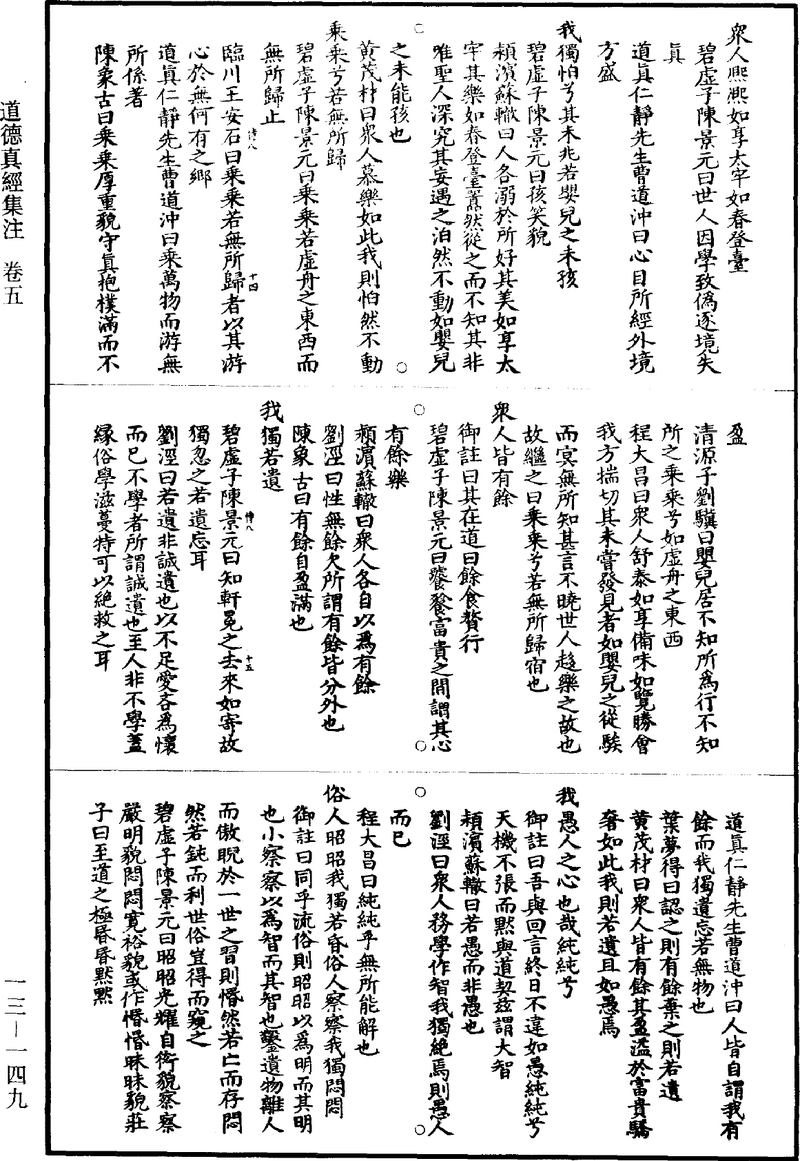 衆人熙熙如享太牢如春登臺
碧虛子陳景元曰世人因學致偽逐境失
真
道真仁靜先生曹道沖曰心目所經外境
方盛
我獨怕兮其未兆若嬰兒之未孩
碧虛子陳景元曰孩笑貌
潁濱蘇轍曰人各溺於所好其美如享太
牢其樂如春登臺嚻然從之而不知其非
唯聖人深究其妄遇之泊然不動如嬰兒
之未能孩也
黃茂材曰衆人慕樂如此我則怕然不動
乘乘兮若無所歸
碧虛子陳景元曰乘乘若虛舟之東西而
無所歸止
臨川王安石曰乘乘若無所歸者以其游
心於無何有之鄉
道真仁靜先生曹道沖曰乘萬物而游無
所係著
陳象古曰乘乘厚重貌守真抱樸滿而不
盈
清源子劉驥曰嬰兒居不知所爲行不知
所之乘乘兮如虛舟之東西
程大昌曰衆人舒泰如享備味如覽勝會
我方揣切其未嘗發見者如嬰兒之從騃
而冥無所知其言不曉世人趍樂之故也
故繼之曰乘乘兮若無所歸宿也
衆人皆有餘
御註曰其在道曰餘食贅行
碧虛子陳景元曰饕餮富貴之間謂其心
有餘樂
潁濱蘇轍曰衆人各自以爲有餘
劉涇曰性無餘欠所謂有餘皆分外也
陳象古曰有餘自盈滿也
我獨若遺
碧虛子陳景元曰知軒冕之去來如寄故
獨忽之若遺忘耳
劉涇曰若遺非誠遺也以不足愛吝爲懷
而已不學者所謂誠遺也至人非不學蓋
緣俗學滋蔓特可以絕救之耳
道真仁靜先生曹道沖曰人皆自謂我有
餘而我獨遺忘若無物也
葉夢得曰認之則有餘棄之則若遺
黃茂材曰衆人皆有餘其盈溢於富貴驕
奢如此我則若遺且如愚焉
我愚人之心也哉純純兮
御註曰吾與回言終日不違如愚純純兮
天機不張而默與道契茲謂大智
潁濱蘇轍曰若愚而非愚也
劉涇曰衆人務學作智我獨絕焉則愚人
而已
程大昌曰純純乎無所能解也
俗人昭昭我獨若昏俗人察察我獨悶悶
御註曰同乎流俗則昭昭以爲明而其明
也小察察以爲智而其智也鑿遺物離人
而傲睨於一世之習則惛然若亡而存悶
然若鈍而利世俗豈得而窺之
碧虛子陳景元曰昭昭光耀自衒貌察察
嚴明貌悶悶寬裕貌或作惛惛昧昧貌莊
子曰至道之極昏昏默默
道德真經集注　卷五
一三－一四九